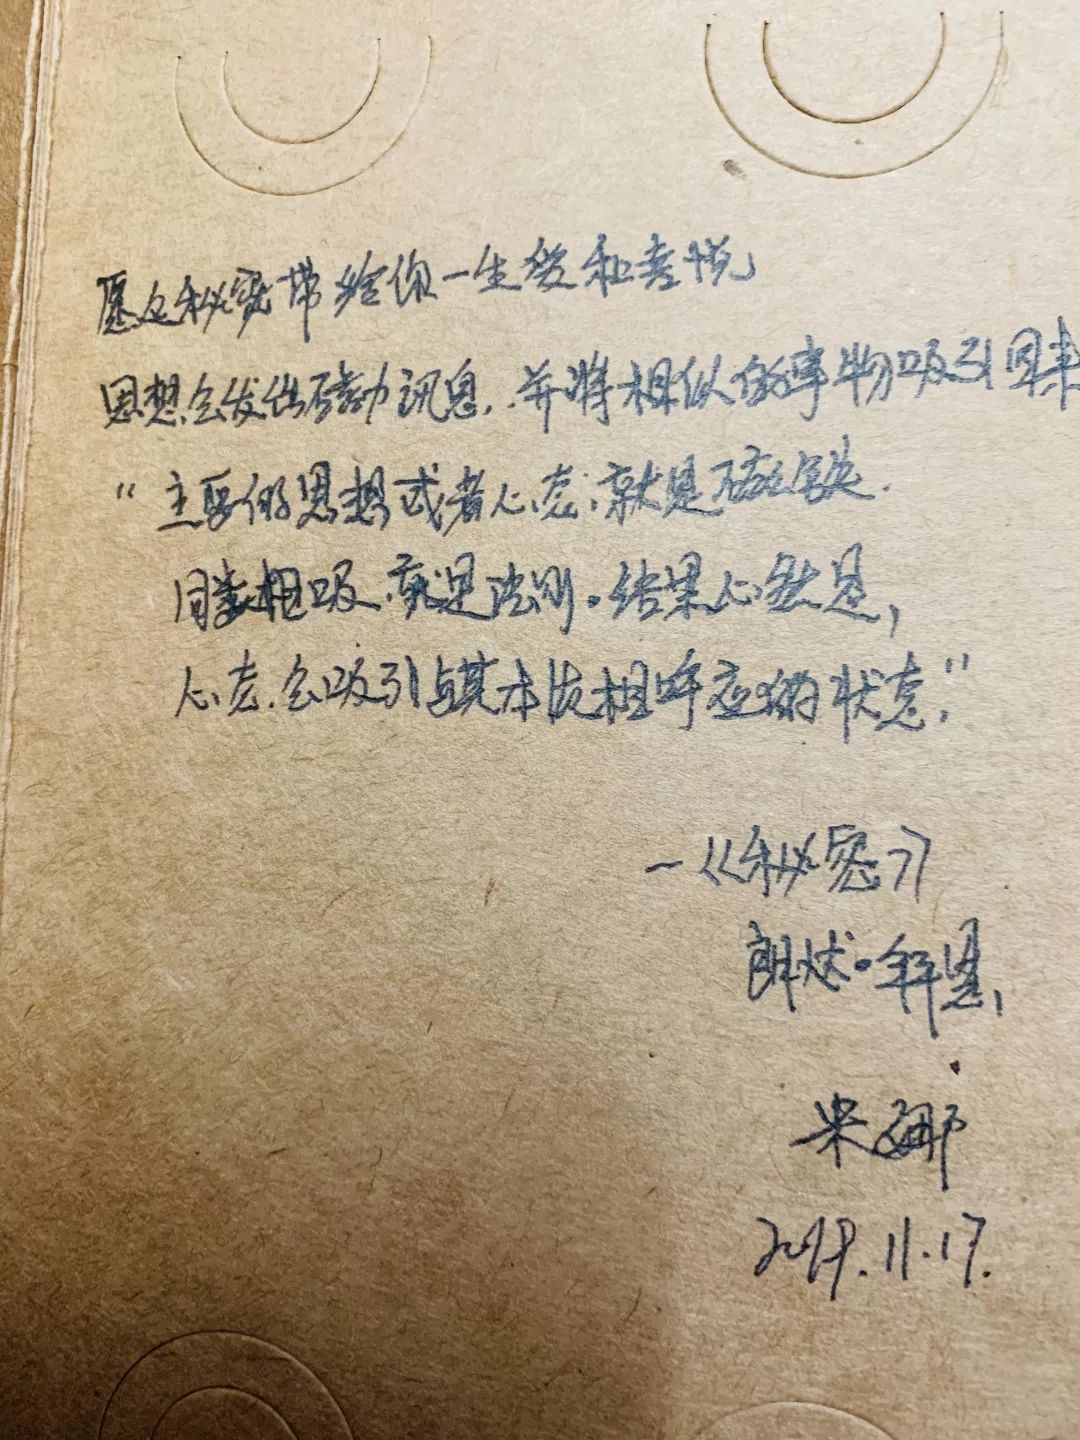 愿这秘密带给你一生爱和喜悦
思想会发出磁力讯息,并将相似的事物吸引回来
“主要的思想或者心态,就是磁铁.
同类相吸,就是法则。结果必然是,
心态会吸引与其本质相呼应的状态,”
—《秘密》
朗达·拜恩,
米娜
11.17.